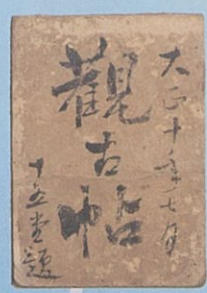 大正十年七月
觀古帖
十五堂題